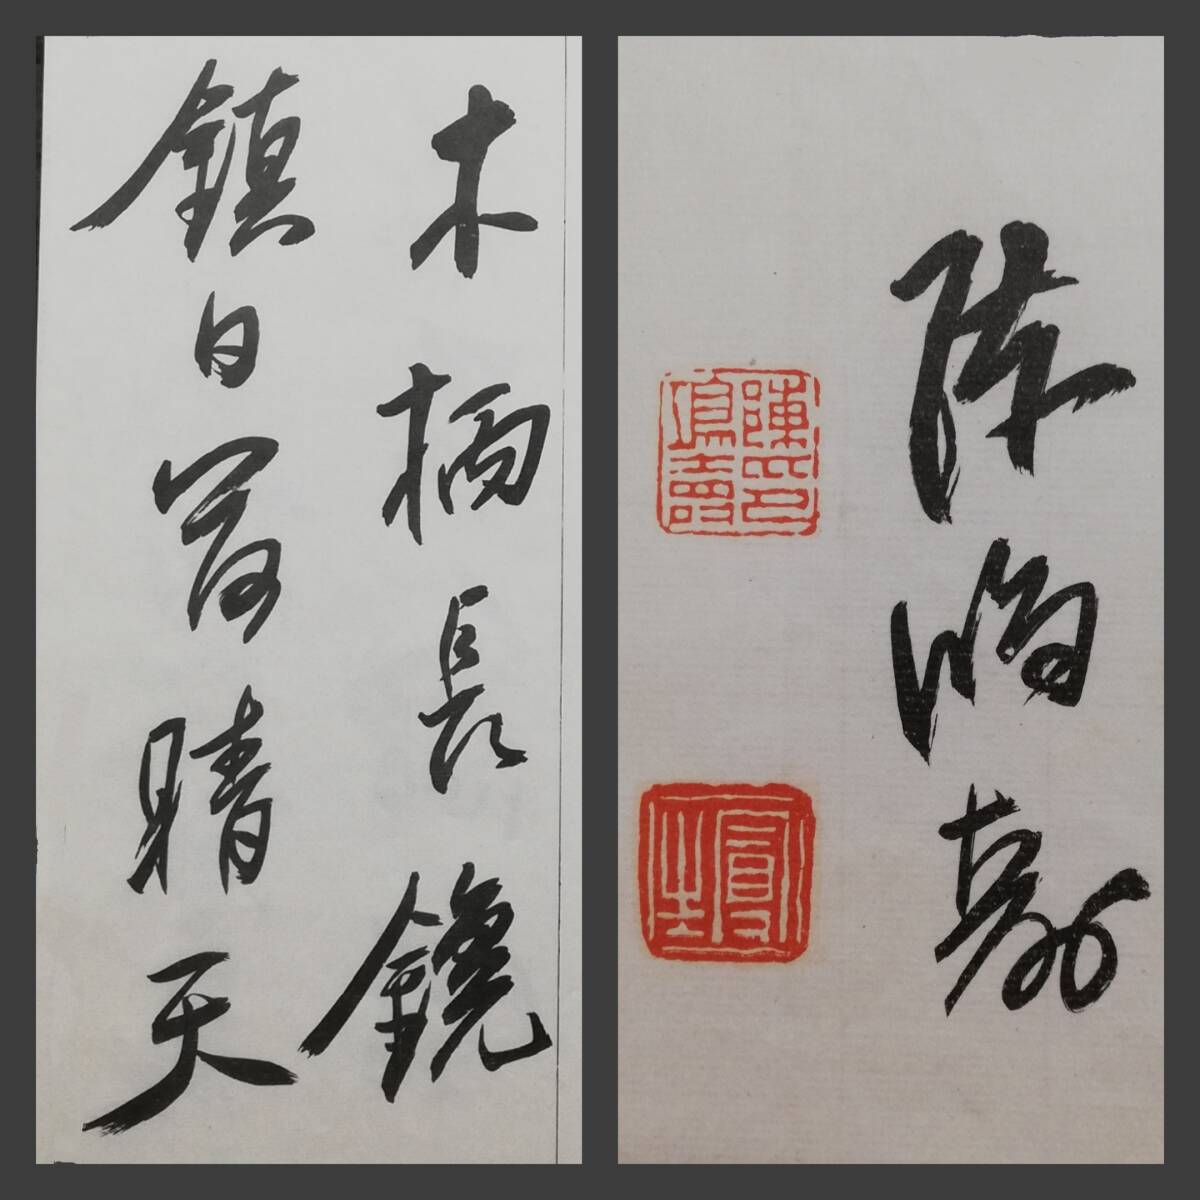 木柄長鑱
鎮日晴天
陳鴻壽
陳鴻壽印
曼生